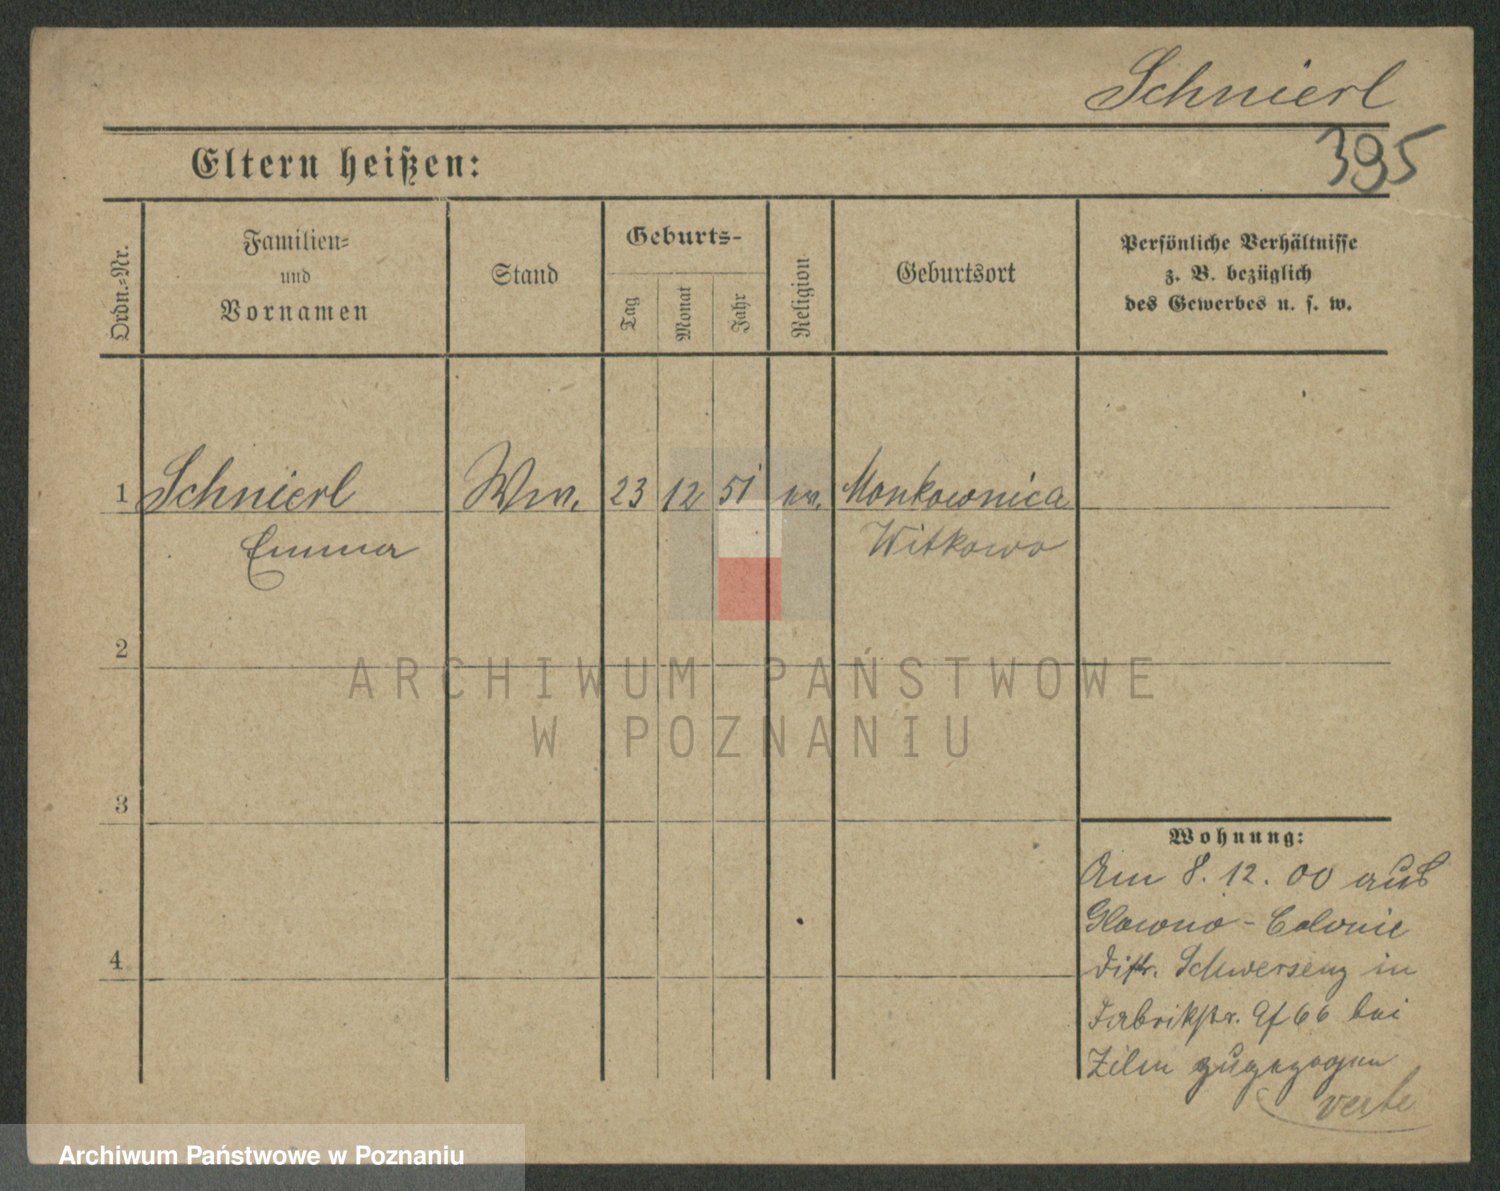 Schnierl
395
Eltern heißen:
Ordn.-Nr.
Familien-
und
Vornamen
Stand
Geburts-
Tag
Monat
Jahr
Religion
Geburtsort
Persönliche Verhältnisse
z. B. bezüglich
des Gewerbes u. s. w.
1 Schnierl Ww. 23 12 51 ev. Monkownica
Emma Witkowo
2
ARCHIWUM PAŃSTWOWE
W POZNANIU
3
Wohnung:
Am 8. 12. 00 aus
Glowno-Colonie
Distr. Schwersenz in
Fabrikstr. 66 bei
Zilm zugezogen
verte
4
Archiwum Państwowe w Poznaniu